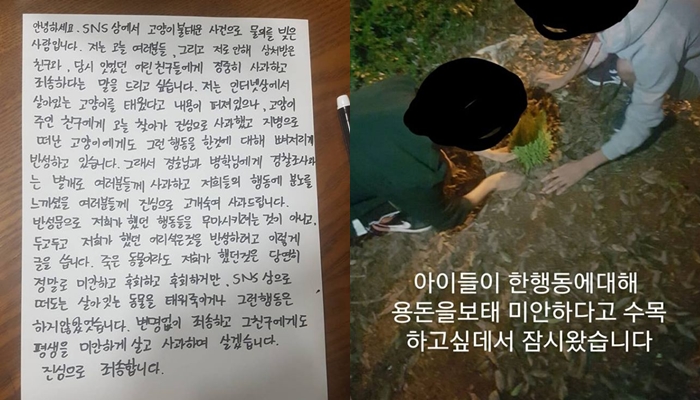 안녕하세요. SNS 상에서 고양이불태운 사건으로 물의를 빚은
사람입니다. 저는 오늘 여러분들, 그리고 저로 인해 상처받은
친구와, 당시 있었던 어린 친구들에게 정중히 사과하고
죄송하다는 말을 드리고 싶습니다. 저는 인터넷상에서
살아있는 고양이를 태웠다고 내용이 퍼져있으나, 고양이
주인 친구에게 오늘 찾아가 진심으로 사과했고 지병으로
떠난 고양이에게도 그런 행동을 한것에 대해 뼈저리게
반성하고 있습니다. 그래서 경호님과 병학님에게 경찰조사과
는 별개로 여러분들께 사과하고 저희들의 행동에 분노를
느끼셨을 여러분들께 진심으로 고개숙여 사과드립니다.
반성문으로 저희가 했던 행동들을 무마시키려는 것이 아니고,
두고두고 저희가 했던 어리석은것을 반성하려고 이렇게
글을 씁니다. 죽은 동물이라도 저희가 했던것은 당연히
정말로 미안하고 후회하고 후회하지만, SNS 상으로
떠도는 살아있는 동물을 태워죽이거나 그런행동은
하지않았었습니다. 변명없이 죄송하고 그친구에게도
평생을 미안하게 살고 사과하며 살겠습니다.
진심으로 죄송합니다.
아이들이 한행동에대해
용돈을보태 미안하다고 수목
하고싶데서 잠시왔습니다